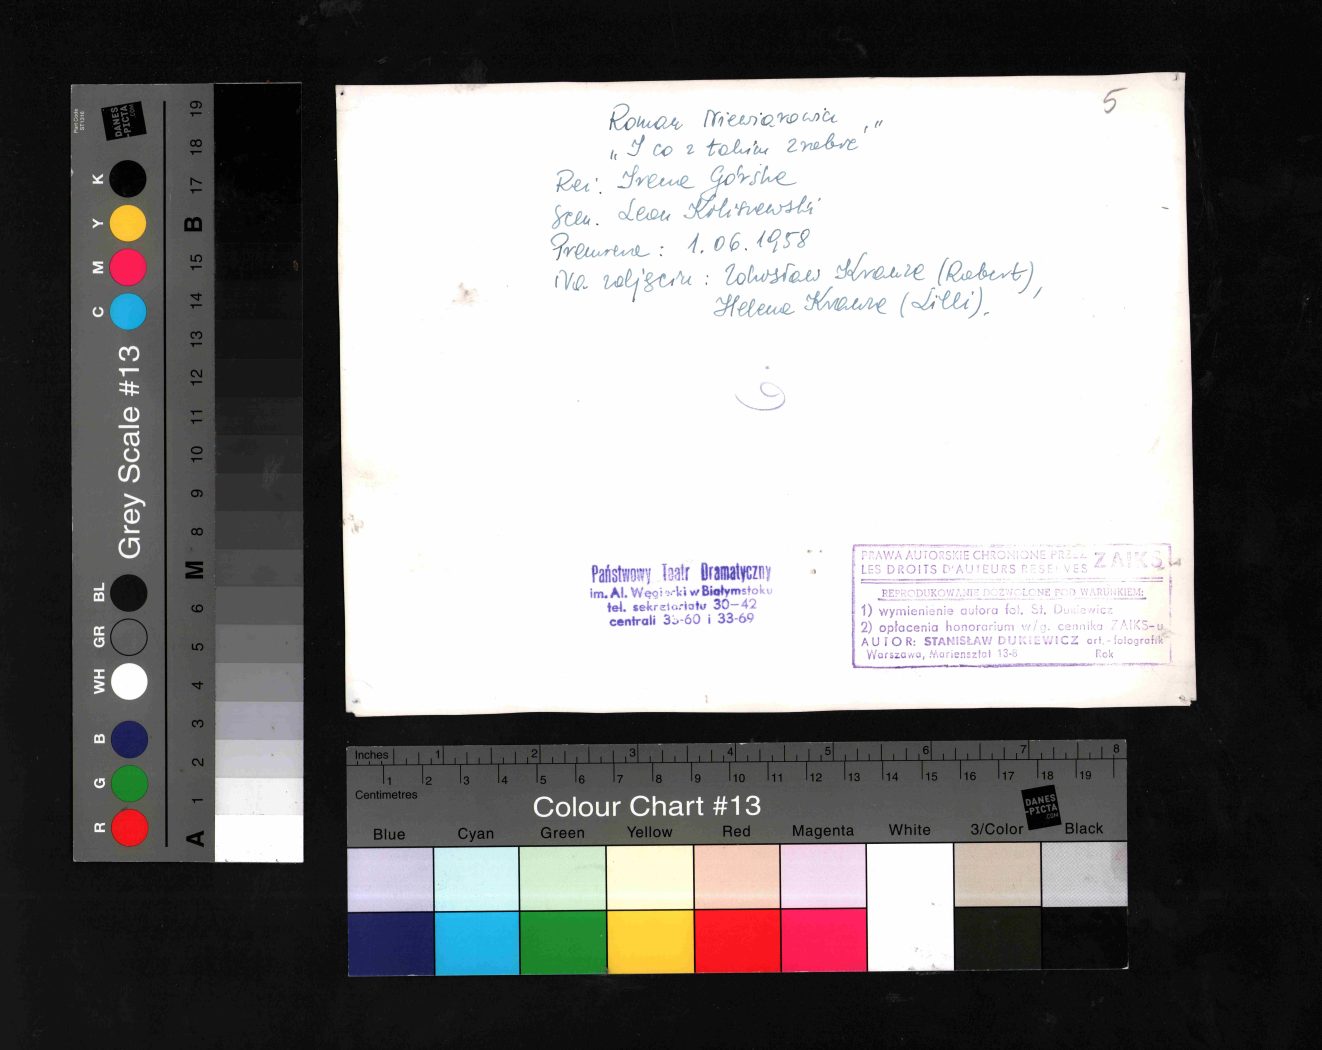 5
Roman Niewiarowicz
„I co z takim zrobić"
Reż. Irena Górska
Scen. Leon Kołiszewski
Premiera: 1.06.1958
Na zdjęciu: Zdzisław Krauze (Robert),
Helena Krauze (Lilli).
Państwowy Teatr Dramatyczny
im. Al. Węgierki w Białymstoku
tel. sekretariatu 30-42
centrali 33-60 i 33-69
PRAWA AUTORSKIE CHRONIONE PRZEZ ZAIKS
LES DROITS D'AUTEURS RESERVES
REPRODUKOWANIE DOZWOLONE POD WARUNKIEM:
1) wymienienie autora fot. St. Dukiewicz
2) opłacenia honorarium w/g. cennika ZAIKS-u
AUTOR: STANISŁAW DUKIEWICZ art.-fotografik
Warszawa, Mariensztat 13-8 Rok
Grey Scale #13
DANES-PICTA.COM
K Y M C
BL GR WH
B G R
19 18 17 B 15 14 13 12 11 10 9 8 M 6 5 4 3 2 1 A
Inches 1 2 3 4 5 6 7 8
1 2 3 4 5 6 7 8 9 10 11 12 13 14 15 16 17 18 19
Centimetres
Colour Chart #13
DANES-PICTA.COM
Blue Cyan Green Yellow Red Magenta White 3/Color Black